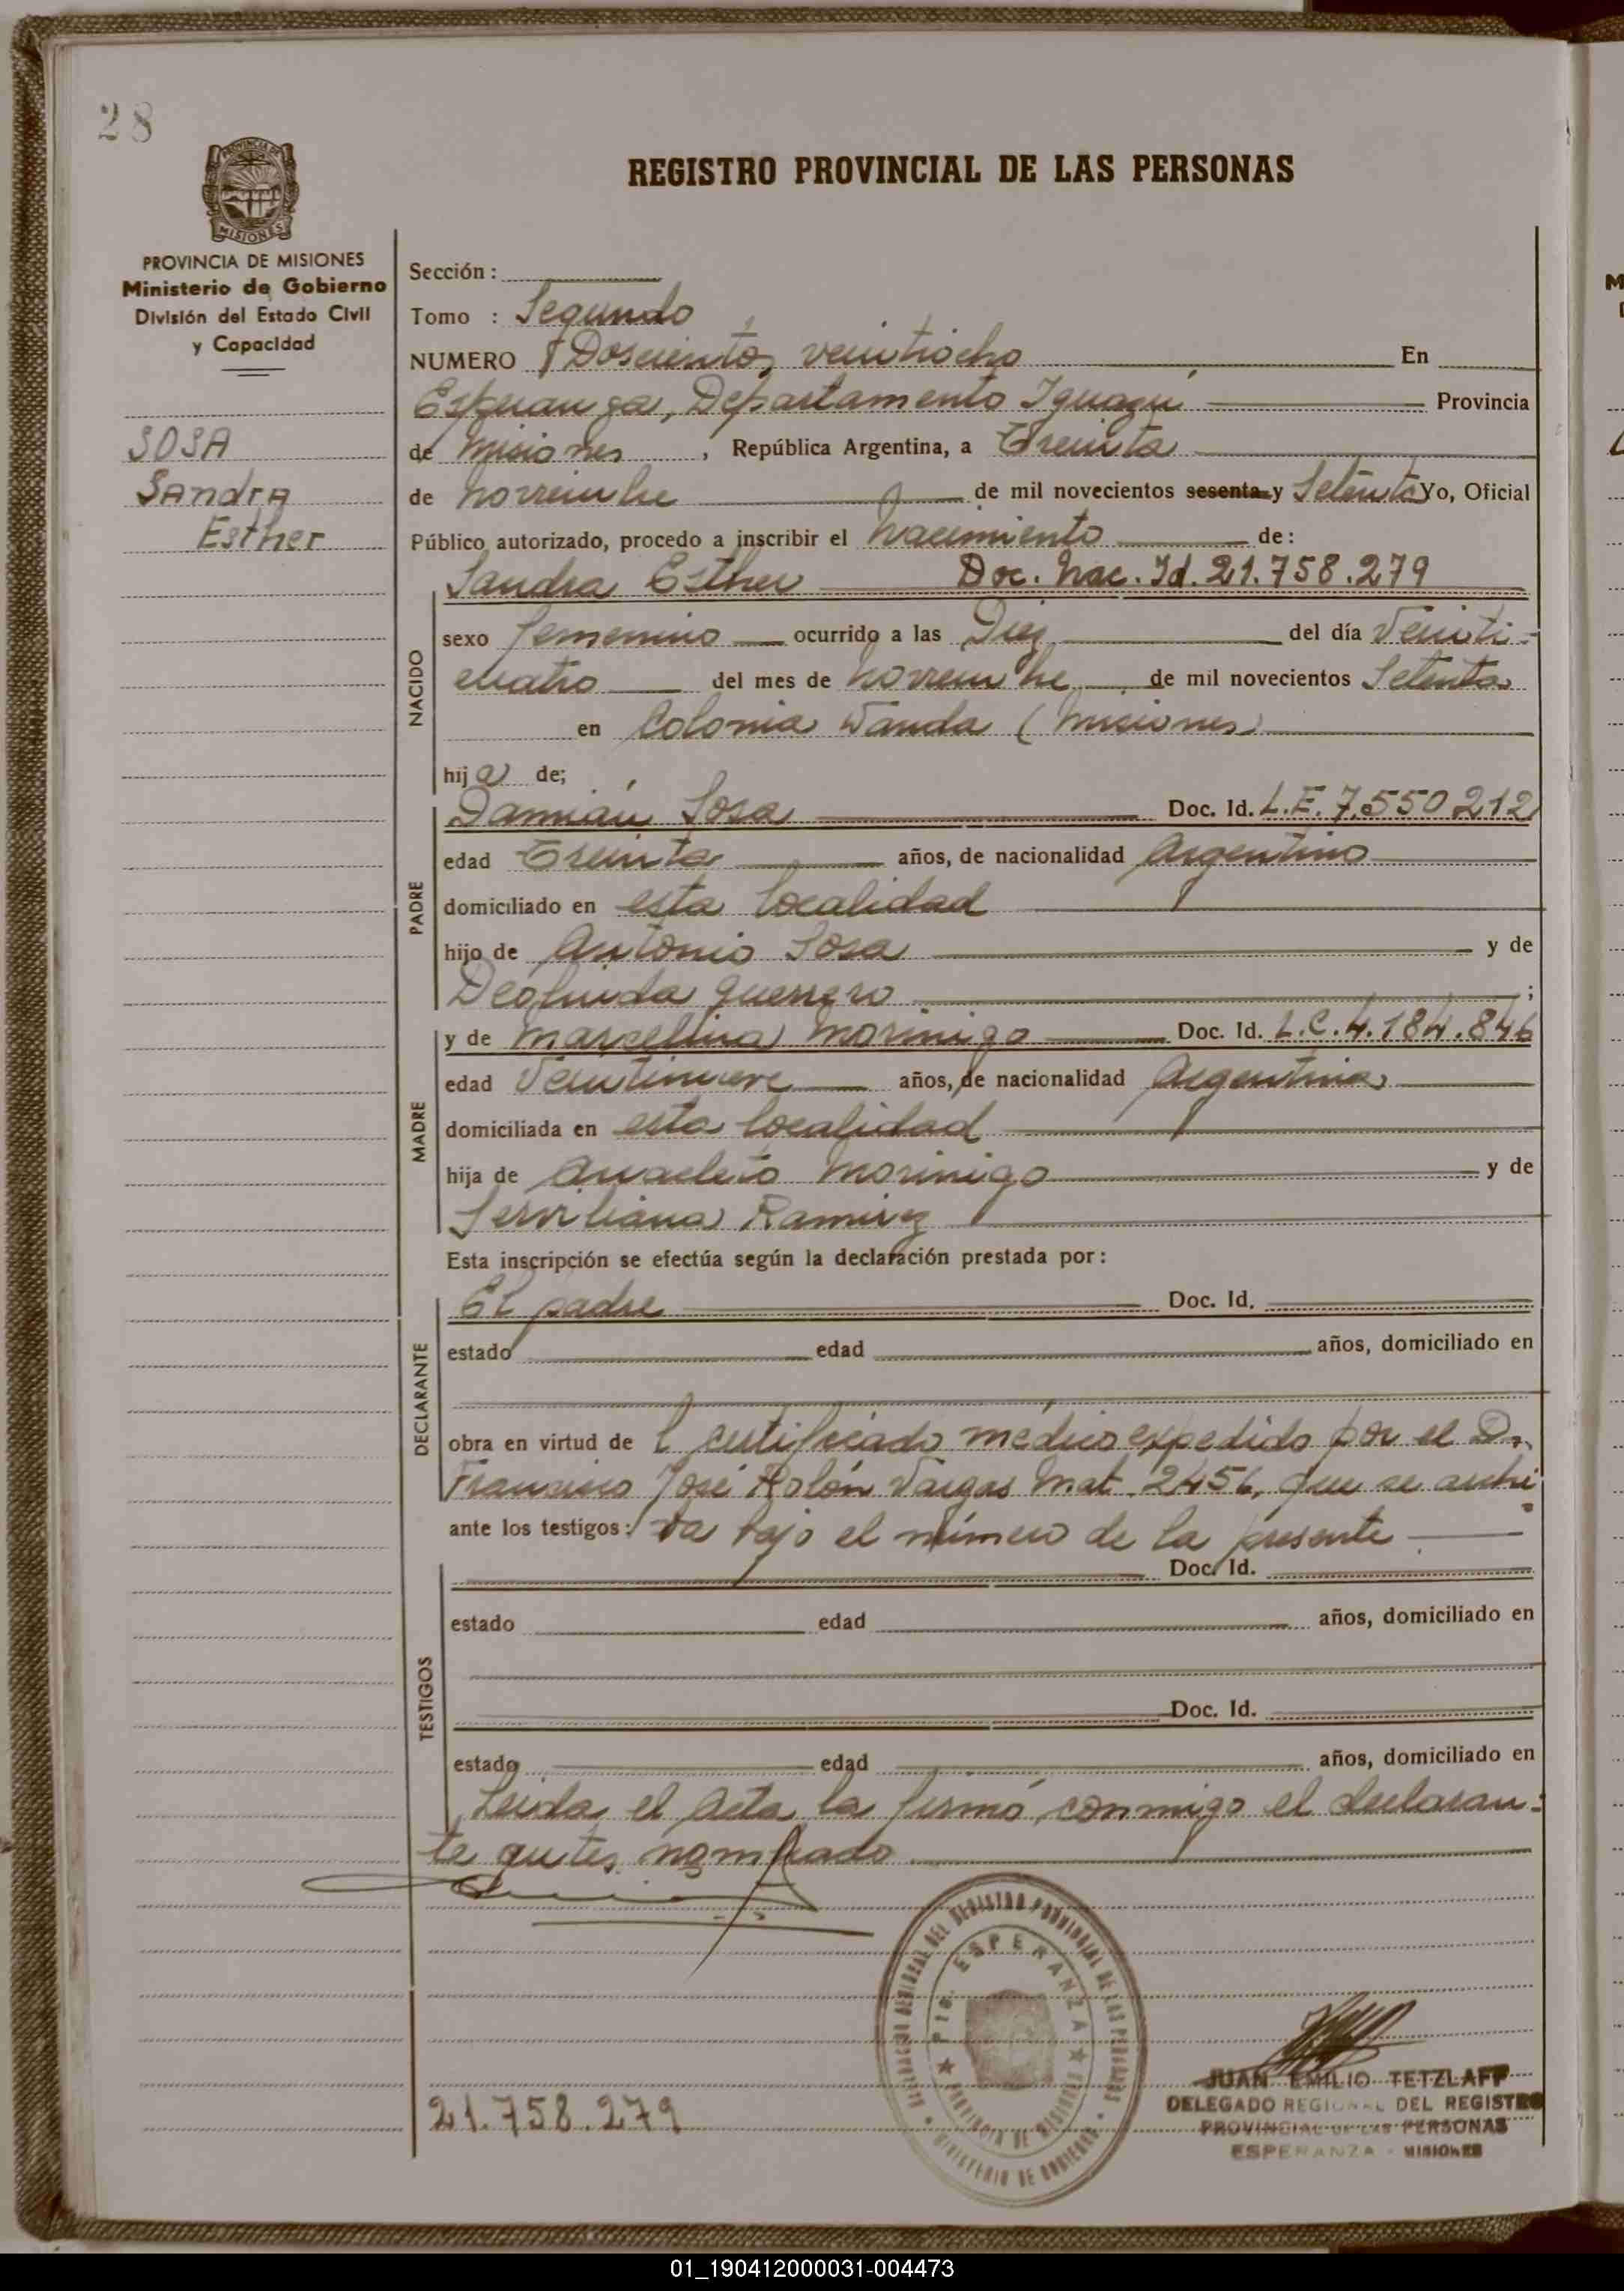 28
PROVINCIA DE
MISIONES
PROVINCIA DE MISIONES
Ministerio de Gobierno
División del Estado Civil
y Capacidad
SOSA
Sandra
Esther
REGISTRO PROVINCIAL DE LAS PERSONAS
Sección :
Tomo : Segundo
NUMERO Doscientos veintiocho En
Esperanza, Departamento Iguazú Provincia
de Misiones , República Argentina, a Treinta
de noviembre de mil novecientos sesenta y Setenta Yo, Oficial
Público autorizado, procedo a inscribir el nacimiento de:
Sandra Esther Doc. Nac. Id. 21.758.279
NACIDO
sexo femenino ocurrido a las Diez del día Veinti-
cuatro del mes de noviembre de mil novecientos Setenta
en Colonia Wanda (Misiones)
hija de;
PADRE
Damián Sosa Doc. Id. L.E. 7.550.212
edad Treinta años, de nacionalidad Argentino
domiciliado en esta localidad
hijo de Antonio Sosa y de
Deolinda Guerrero ;
MADRE
y de Marcelina Morinigo Doc. Id. L.C. 4.184.846
edad Veintinueve años, de nacionalidad Argentina
domiciliada en esta localidad
hija de Anacleto Morinigo y de
Serviliana Ramirez
Esta inscripción se efectúa según la declaración prestada por :
DECLARANTE
El padre Doc. Id.
estado edad años, domiciliado en
obra en virtud de l certificado médico expedido por el Dr.
Francisco José Rolón Vargas Mat. 2456, que se archi
ante los testigos: va bajo el número de la presente
TESTIGOS
Doc. Id.
estado edad años, domiciliado en
Doc. Id.
estado edad años, domiciliado en
Leida el Acta la firmó conmigo el declaran-
te antes nombrado
DEL REGISTRO PROVINCIAL DE LAS PERSONAS
Pto. ESPERANZA
PROVINCIA DE MISIONES
MINISTERIO DE GOBIERNO
JUAN EMILIO TETZLAFF
DELEGADO REGIONAL DEL REGISTRO
PROVINCIAL DE LAS PERSONAS
ESPERANZA - MISIONES
21.758.279
01_190412000031-004473